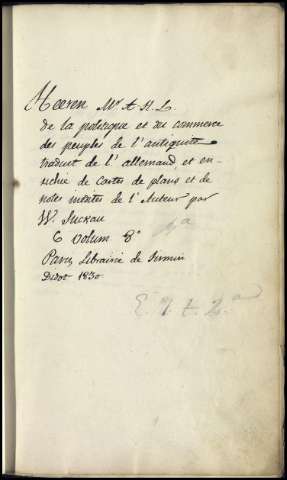 Heeren Mr A H L
de la politique et du commerce
des peuples de l'antiquité
traduit de l'allemand, et en-
richie de Cartes de plans et de
notes inédites de l'Auteur par
W. Suckau
6 volum 8º
Paris Librairie de Firmin
Didot 1830